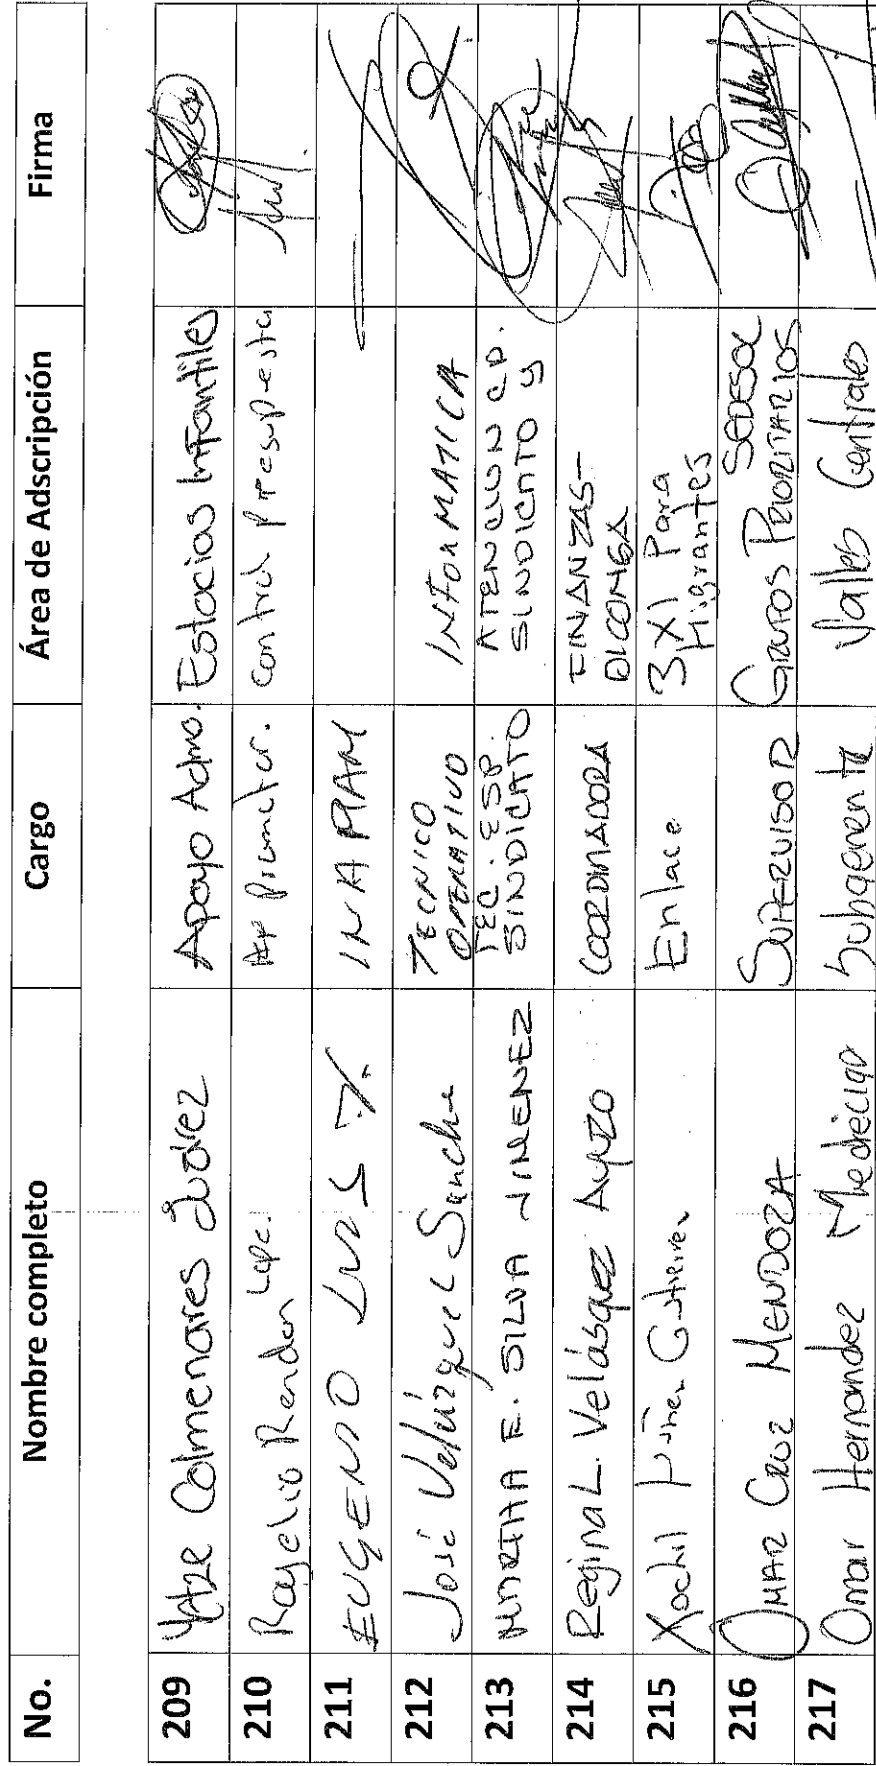 No. Nombre completo Cargo Área de Adscripción Firma
209 Yatze Colmenares Juárez Apoyo Admo. Estacias Infantiles
210 Rogelio Rendon Lope. Ap promotor. control presupuesta
211 EUGENIO LUIS INAPAM
212 José Velázquez Sanche TECNICO OPERATIVO INFORMATICA
213 MARTHA E. SILVA JIMENEZ TEC. ESP. SINDICATO ATENCION CD. SINDICATO Y
214 Regina L. Velásquez Ayuzo COORDINADORA FINANZAS- DICONSA
215 Xochil Núñez Gutierrez Enlace 3X1 Para Migrantes
216 OMAR CRUZ MENDOZA SUPERVISOR SEDESOL GRUPOS PRIORITARIOS
217 Omar Hernandez Subgerente Valles Centrales